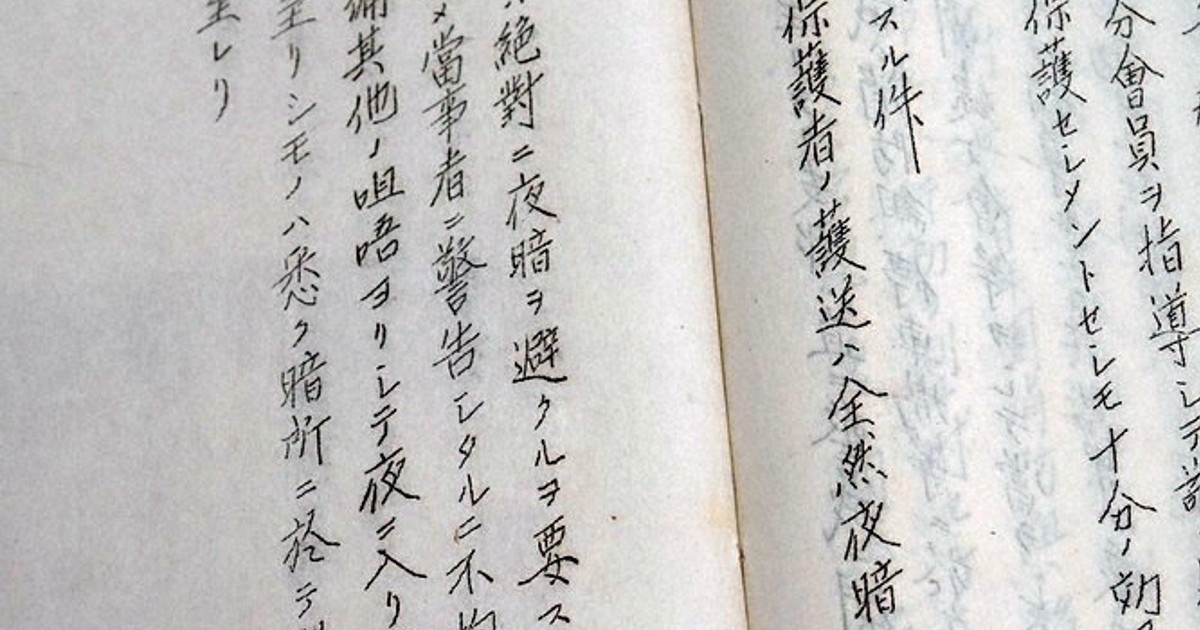 分會員ヲ指導シテ
保護セシメントセシモ十分ノ効
スル件
保護者ノ護送ハ全然夜暗
絶對ニ夜暗ヲ避クルヲ要ス
當事者ニ警告シタルニ不拘
其他ノ咀唔ヨリシテ夜ニ入リ
至リシモノハ悉ク暗所ニ於テ
至レリ